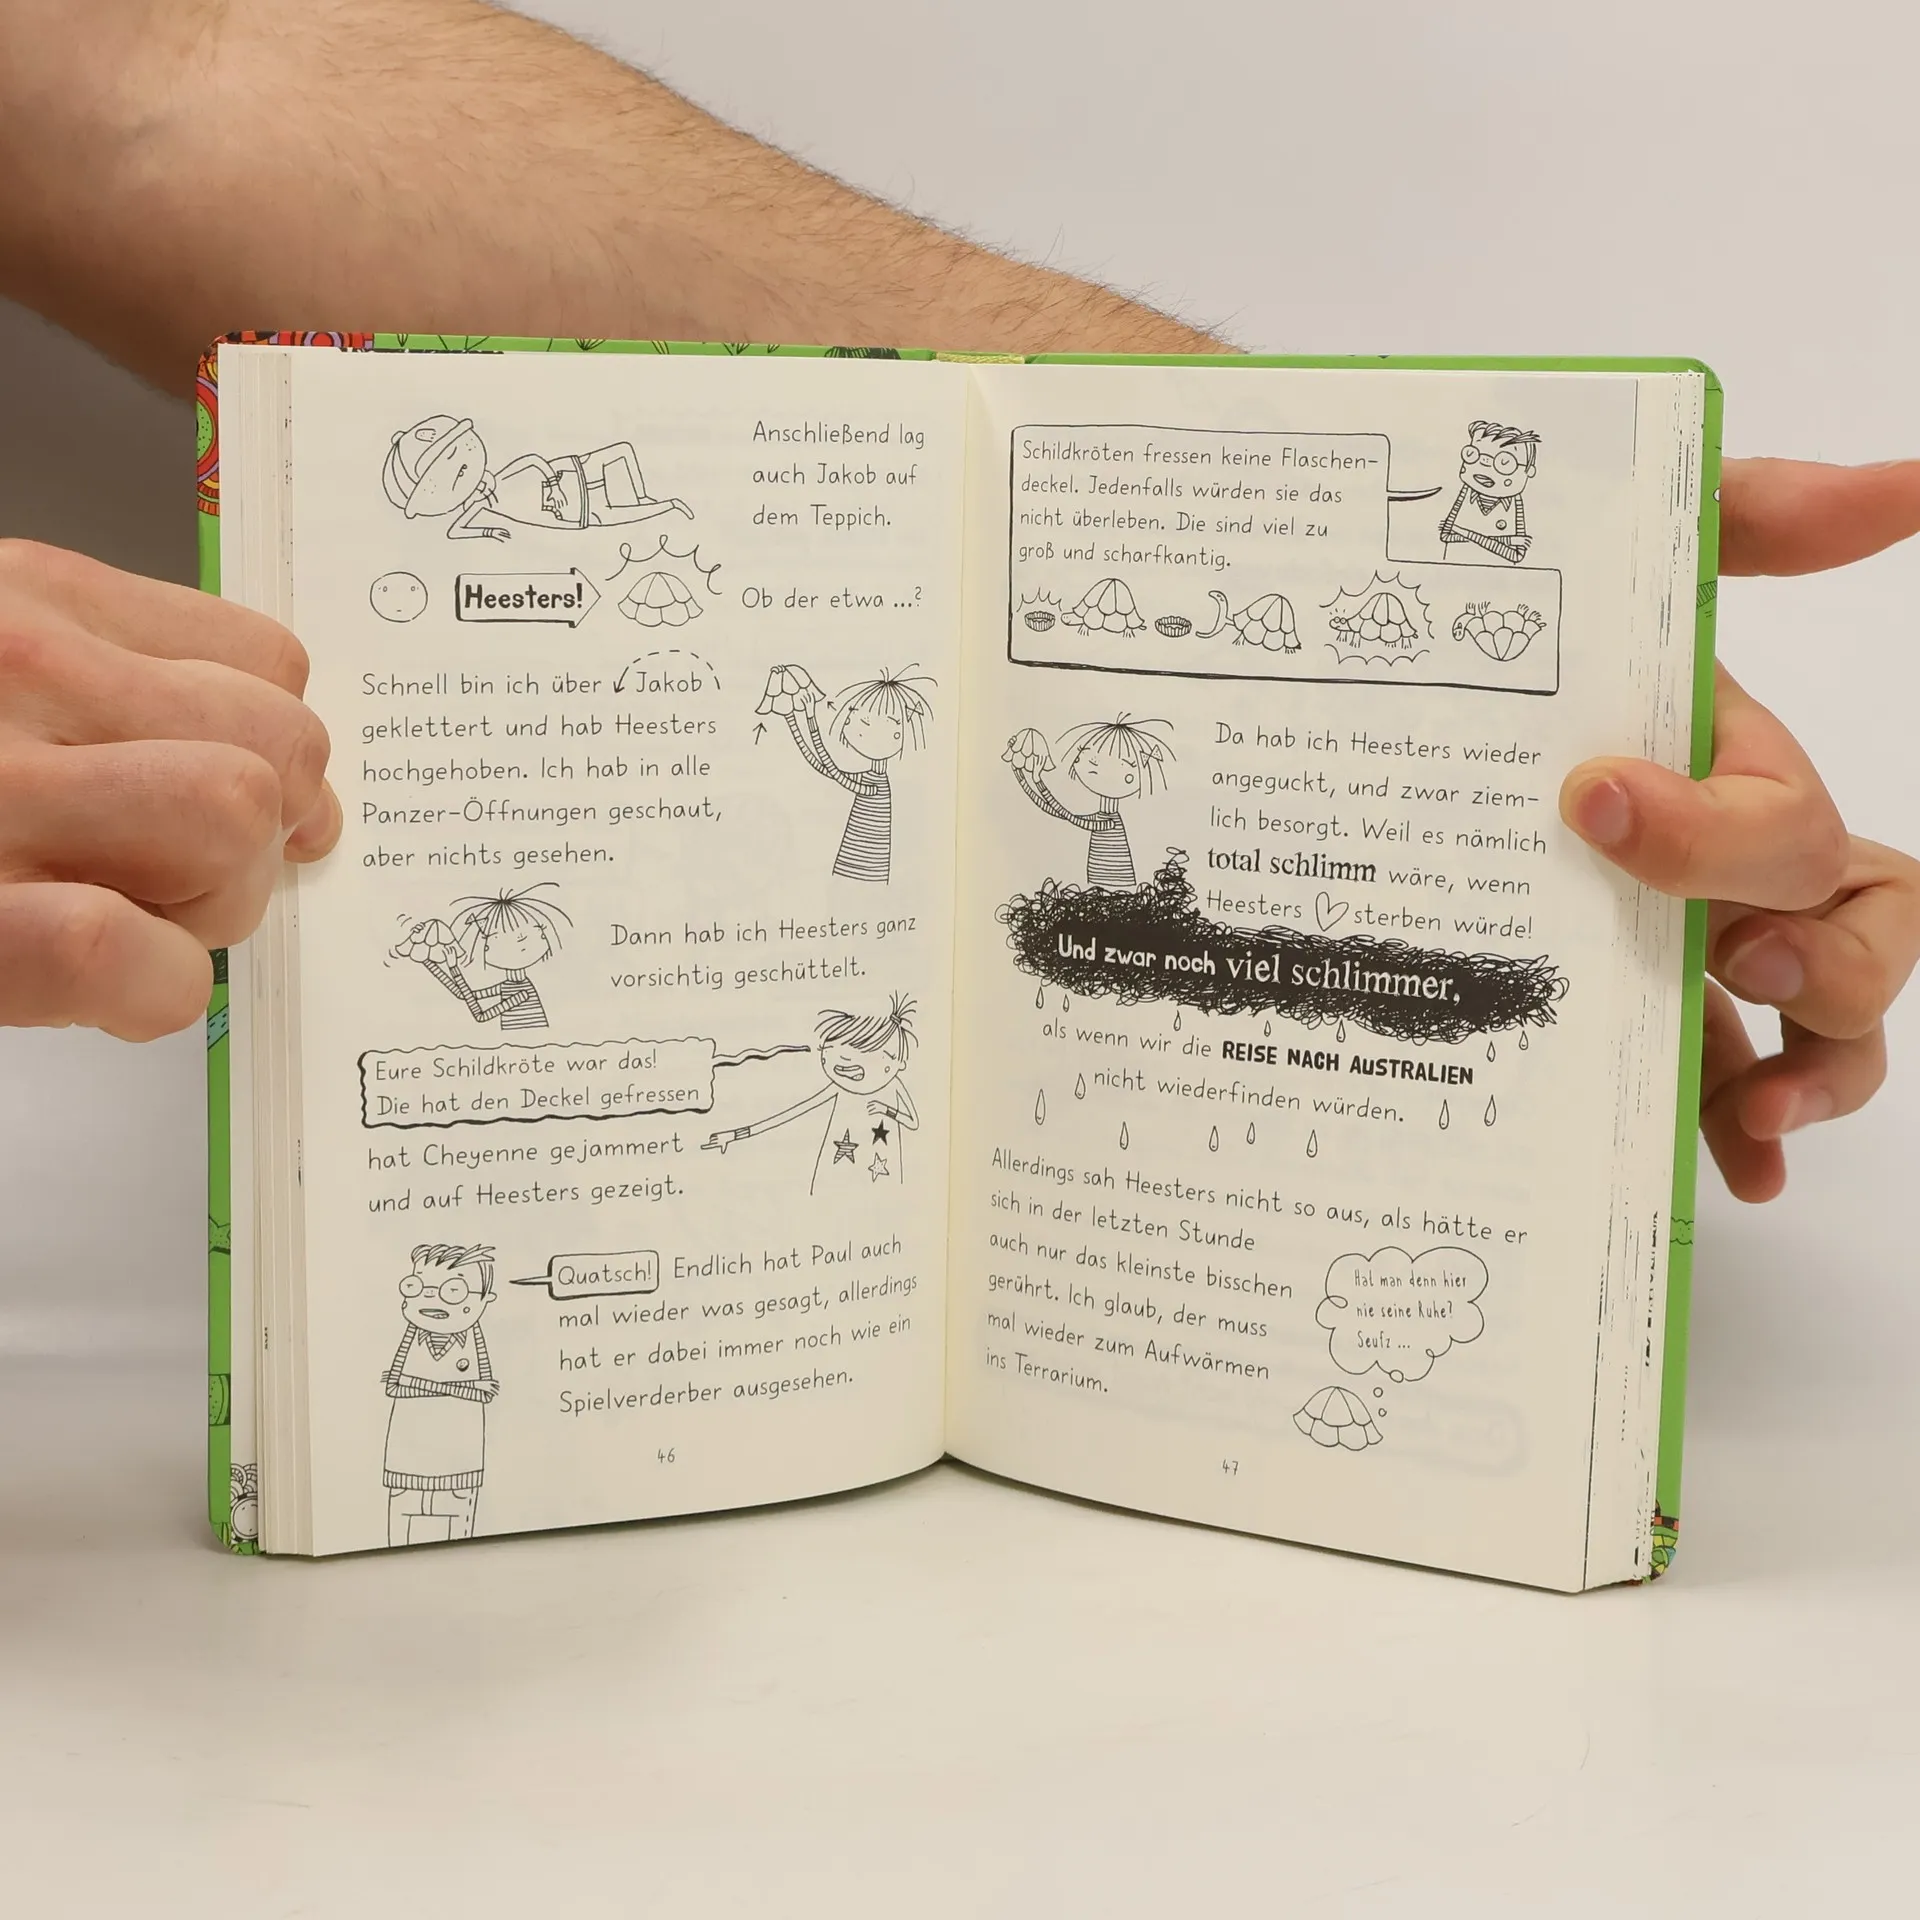 Anschließend lag
auch Jakob auf
dem Teppich.
Heesters!
Ob der etwa ...?
Schnell bin ich über Jakob
geklettert und hab Heesters
hochgehoben. Ich hab in alle
Panzer-Öffnungen geschaut,
aber nichts gesehen.
Dann hab ich Heesters ganz
vorsichtig geschüttelt.
Eure Schildkröte war das!
Die hat den Deckel gefressen
hat Cheyenne gejammert
und auf Heesters gezeigt.
Quatsch! Endlich hat Paul auch
mal wieder was gesagt, allerdings
hat er dabei immer noch wie ein
Spielverderber ausgesehen.
46
Schildkröten fressen keine Flaschen-
deckel. Jedenfalls würden sie das
nicht überleben. Die sind viel zu
groß und scharfkantig.
Da hab ich Heesters wieder
angeguckt, und zwar ziem-
lich besorgt. Weil es nämlich
total schlimm wäre, wenn
Heesters sterben würde!
Und zwar noch viel schlimmer,
als wenn wir die REISE NACH AUSTRALIEN
nicht wiederfinden würden.
Allerdings sah Heesters nicht so aus, als hätte er
sich in der letzten Stunde
auch nur das kleinste bisschen
gerührt. Ich glaub, der muss
mal wieder zum Aufwärmen
ins Terrarium.
Hat man denn hier
nie seine Ruhe?
Seufz ...
47